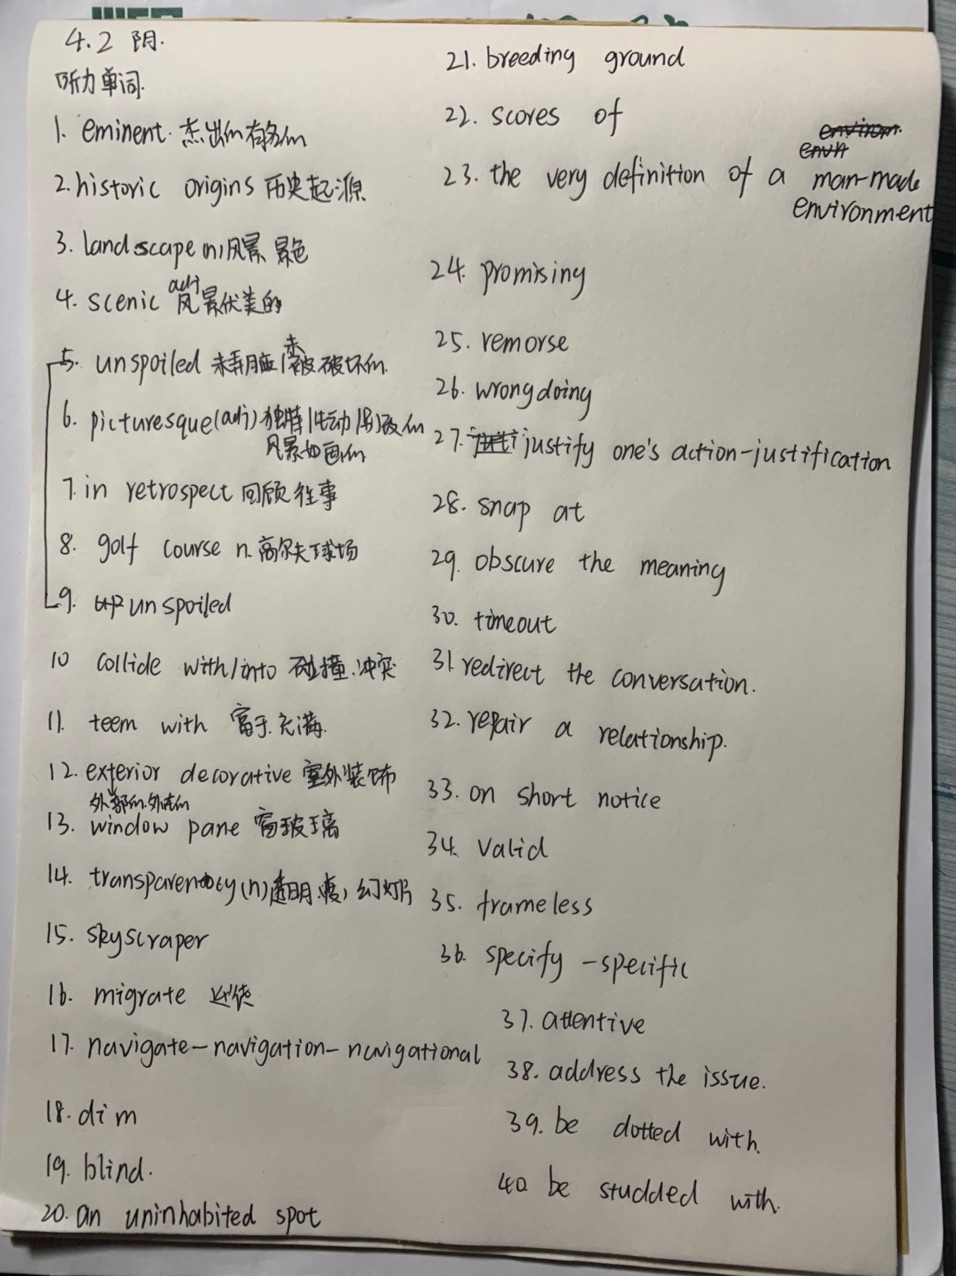 4.2 阴.
听力单词.
1. eminent. 杰出的 有名的
2. historic origins 历史起源
3. landscape (n) 风景 景色
adj
4. scenic 风景优美的
5. unspoiled 未弄脏 | 未被破坏的.
6. picturesque (adj) 独特 | 生动 | 别致的
风景如画的
7. in retrospect 回顾往事
8. golf course n. 高尔夫球场
9. unspoiled
10 collide with/into 碰撞. 冲突
11. teem with 富于. 充满.
12. exterior decorative 室外装饰
外部的. 外表的
13. window pane 窗玻璃
14. transparency (n) 透明(度) 幻灯片
15. skyscraper
16. migrate 迁徙
17. navigate - navigation - navigational
18. dim
19. blind.
20. an uninhabited spot
21. breeding ground
22. scores of
23. the very definition of a man-made
environment
24. promising
25. remorse
26. wrongdoing
27. justify one's action - justification
28. snap at
29. obscure the meaning
30. timeout
31. redirect the conversation.
32. repair a relationship.
33. on short notice
34. valid
35. frameless
36. specify - specific
37. attentive
38. address the issue.
39. be dotted with.
40. be studded with.